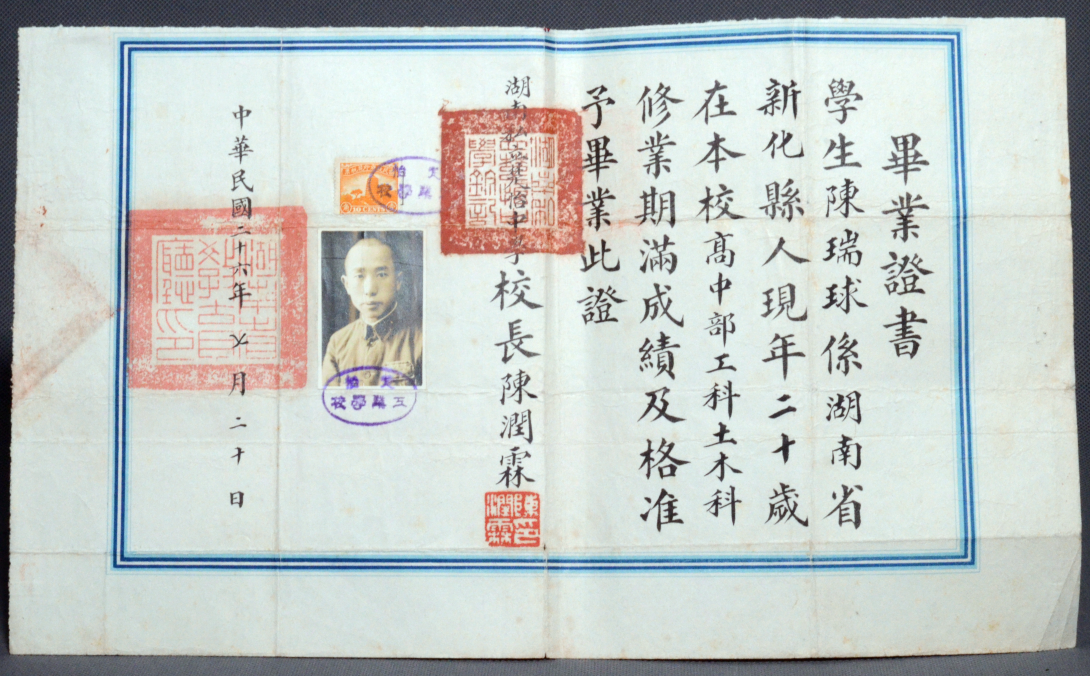 畢業證書
學生陳瑞球係湖南省
新化縣人現年二十歲
在本校高中部工科土木科
修業期滿成績及格准
予畢業此證
湖南私立楚怡中學校長陳潤霖
陳潤霖印
中華民國二十六年七月二十日
湖南省教育廳印